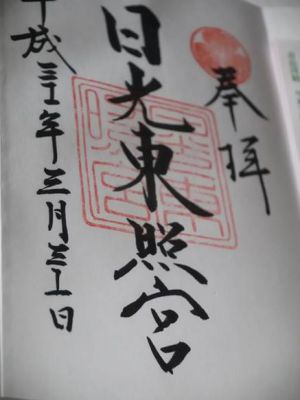 奉拝
日光東照宮
平成三十一年三月三十一日